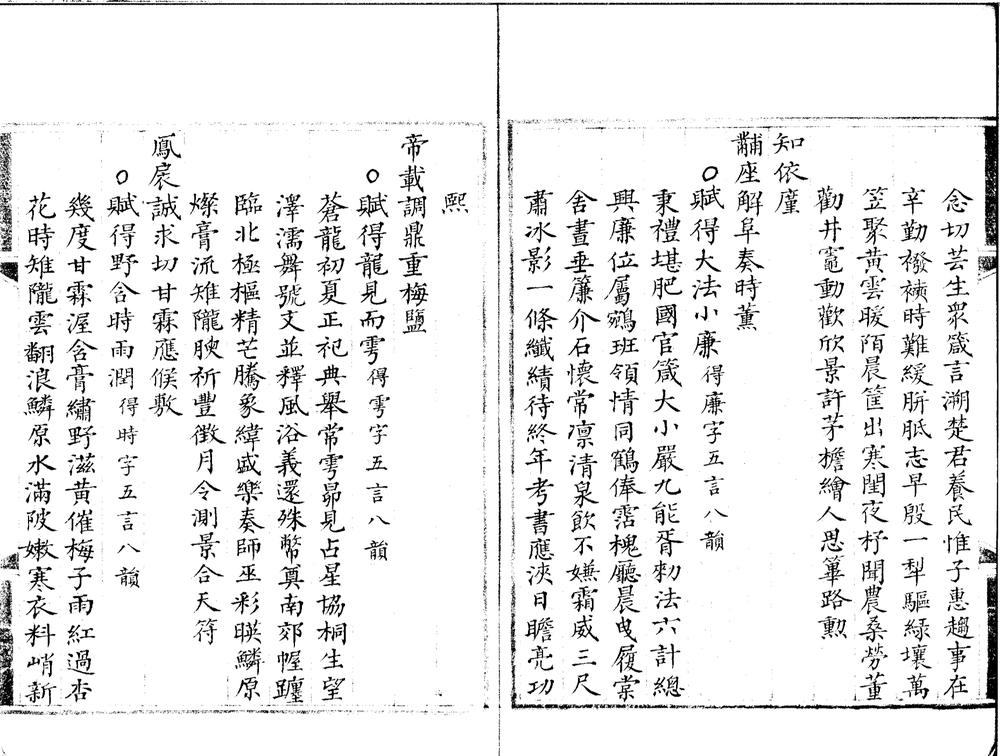 念切芸生衆箴言溯楚君養民惟子惠趨事在
辛勤襏襫時難緩胼胝志早殷一犁驅綠壤萬
笠聚黃雲暖陌晨筐出寒閨夜杼聞農桑勞董
勸井竈動歡欣景許茅檐繪人思篳路勲
知依廑
黼座解阜奏時薰
○賦得大法小廉得廉字五言八韻
秉禮堪肥國官箴大小嚴九能胥勑法六計總
興廉位屬鵷班領情同鶴俸霑槐廳晨曳履棠
舍晝垂簾介石懷常凛清泉飲不嫌霜威三尺
肅冰影一條纖績待終年考書應浹日瞻亮功
熙
帝載調鼎重梅鹽
○賦得龍見而雩得雩字五言八韻
蒼龍初夏正祀典舉常雩昴見占星協桐生望
澤濡舞號文並釋風浴義還殊幣奠南郊幄躔
臨北極樞精芒騰象緯盛樂奏師巫彩暎鱗原
燦膏流雉隴腴祈豐徵月令測景合天符
鳳扆誠求切甘霖應候敷
○賦得野含時雨潤得時字五言八韻
幾度甘霖渥含膏繡野滋黃催梅子雨紅過杏
花時雉隴雲翻浪鱗原水滿陂嫩寒衣料峭新